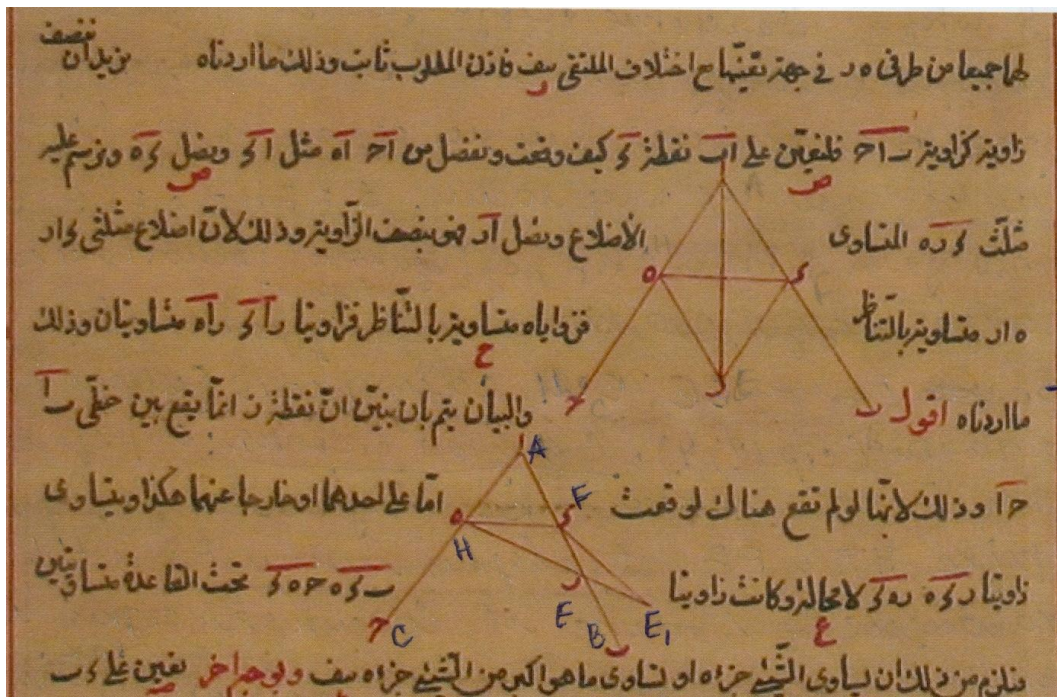 لهما جميعا من طرفى ه د فى جهة بعينها مع اختلاف الملتقى هف فاذن المطلوب ثابت وذلك ما اردناه نريد ان ننصف
زاوية كزاوية ب ا ح فلنعين على ا ب نقطة ء كيف وقعت ونفصل من ا ح ا ه مثل ا ء ونصل ء ه ونرسم عليه
مثلث ء ر ه المتساوى الأضلاع ونصل ا ر فهو ينصف الزاوية وذلك لان اضلاع مثلثى ء ا ر
ه ا ر متساوية بالتناظر فزواياه متساوية بالتناظر فزاويتا ر ا ء ر ا ه متساويتان وذلك
ما اردناه اقول والبيان يتم بان نبين ان نقطة ر انما يقع بين خطى ب ا
ح ا وذلك لانها لو لم تقع هناك لوقعت اما على احدهما او خارجا عنهما هكذا ويتساوى
زاويتا ر ء ه ر ه ء لا محالة وكانت زاويتا ب ء ه ح ه ء تحت القاعدة متساويتين
فيلزم من ذلك ان يساوى الشىء جزءه او يساوى ما هو اكبر من الشىء جزءه هف وبوجه اخر نعين على ء ب
A
F
H
E
B
E₁
C